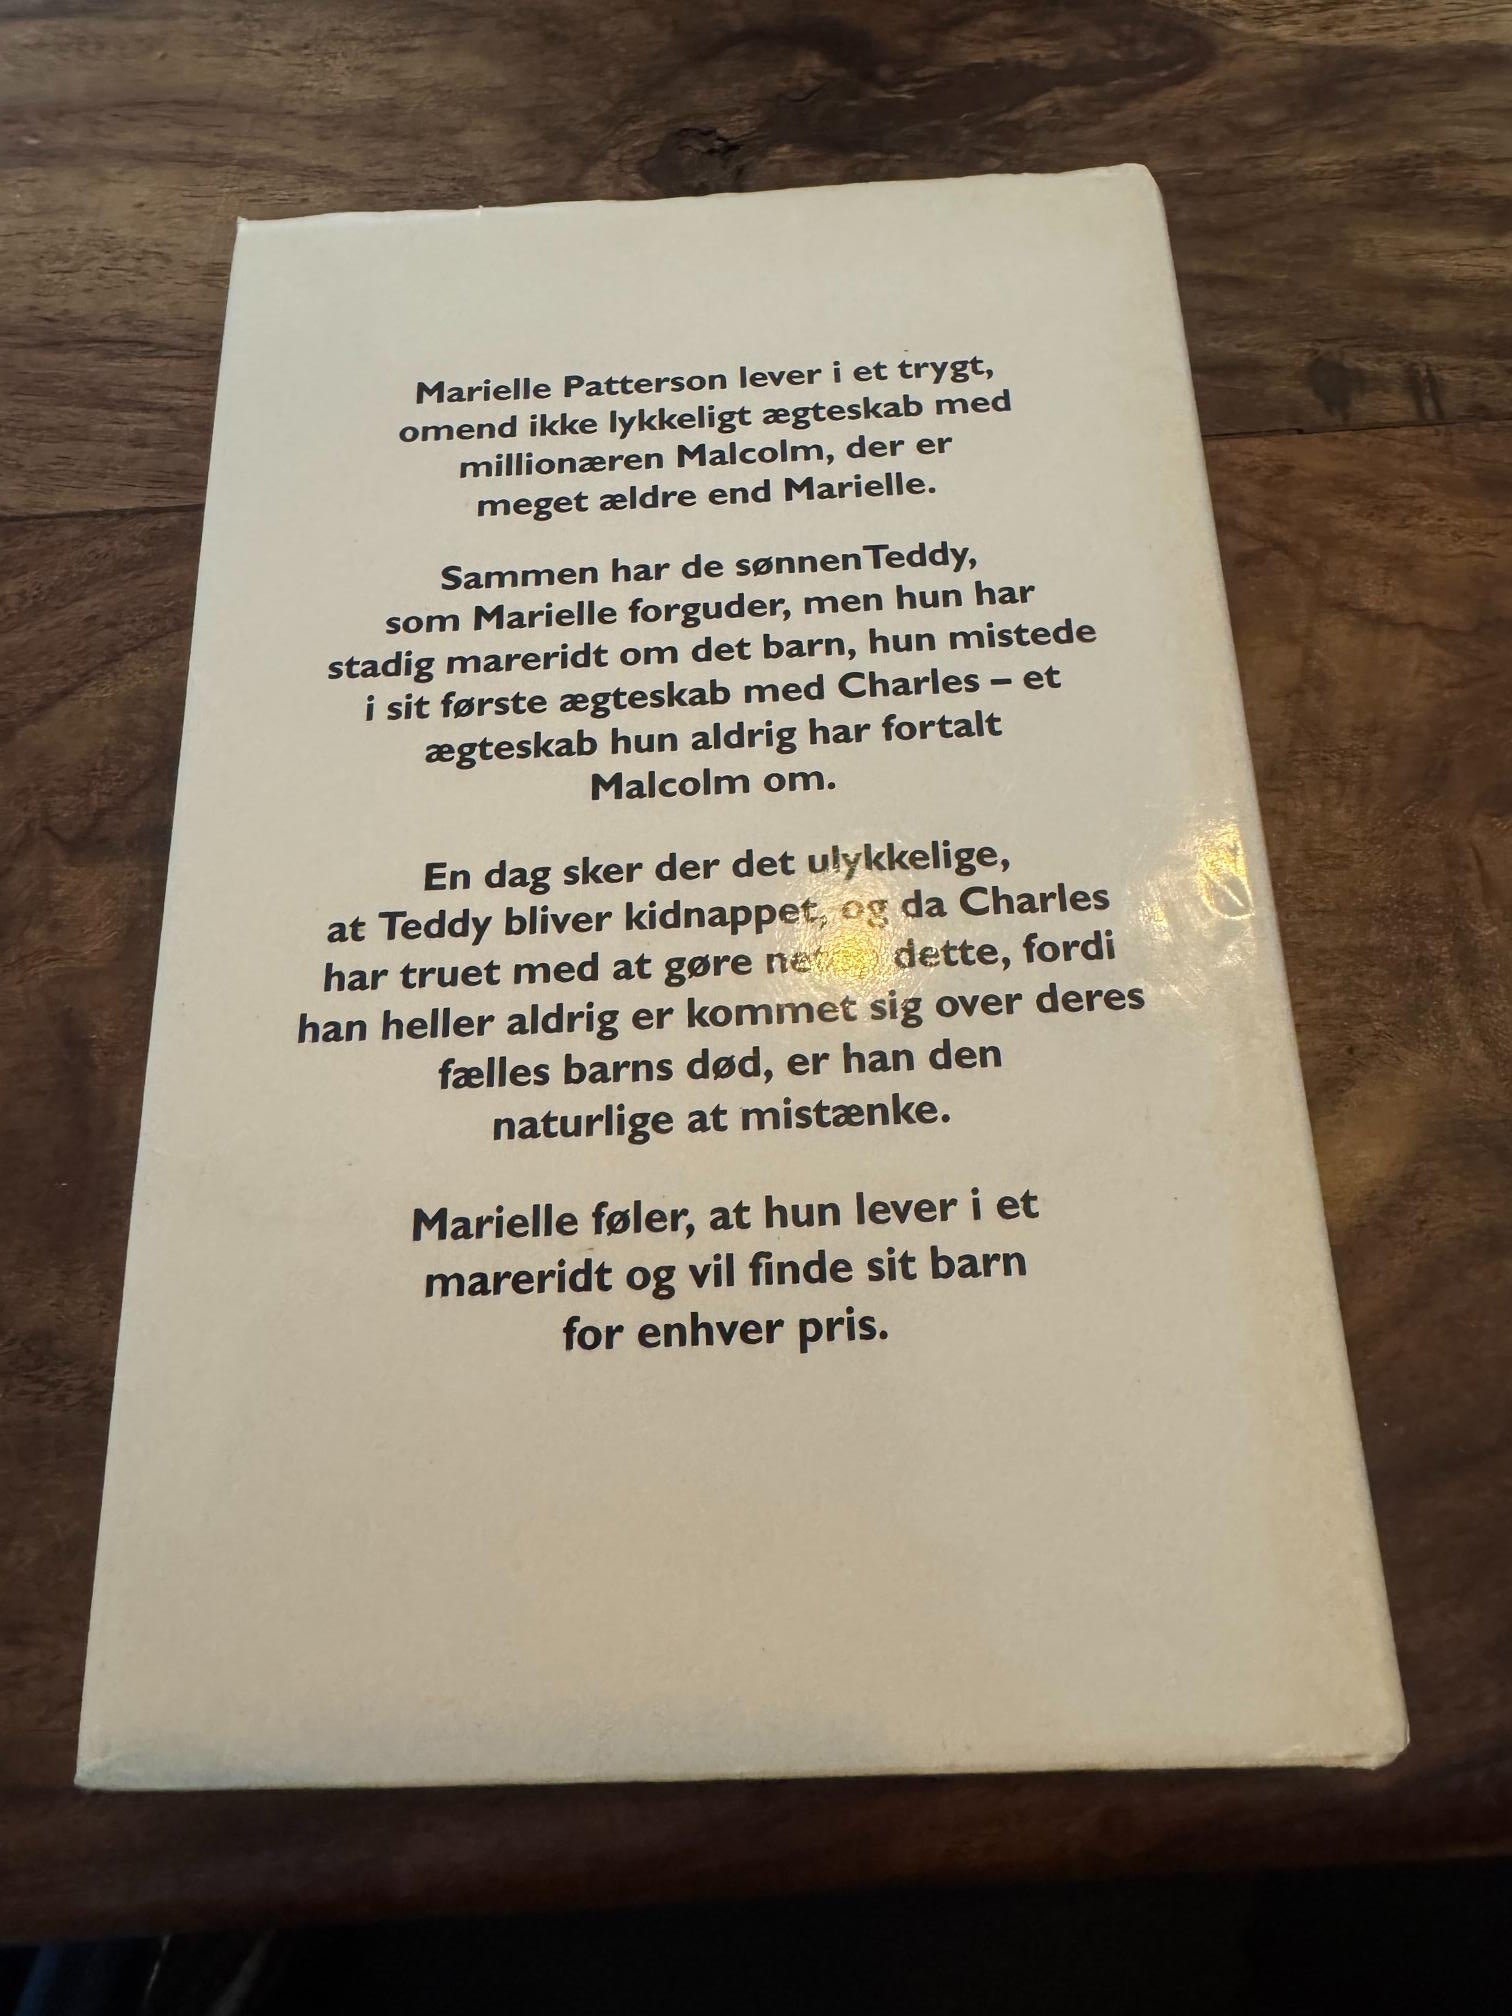 Marielle Patterson lever i et trygt,
omend ikke lykkeligt ægteskab med
millionæren Malcolm, der er
meget ældre end Marielle.
Sammen har de sønnen Teddy,
som Marielle forguder, men hun har
stadig mareridt om det barn, hun mistede
i sit første ægteskab med Charles – et
ægteskab hun aldrig har fortalt
Malcolm om.
En dag sker der det ulykkelige,
at Teddy bliver kidnappet, og da Charles
har truet med at gøre dette, fordi
han heller aldrig er kommet sig over deres
fælles barns død, er han den
naturlige at mistænke.
Marielle føler, at hun lever i et
mareridt og vil finde sit barn
for enhver pris.